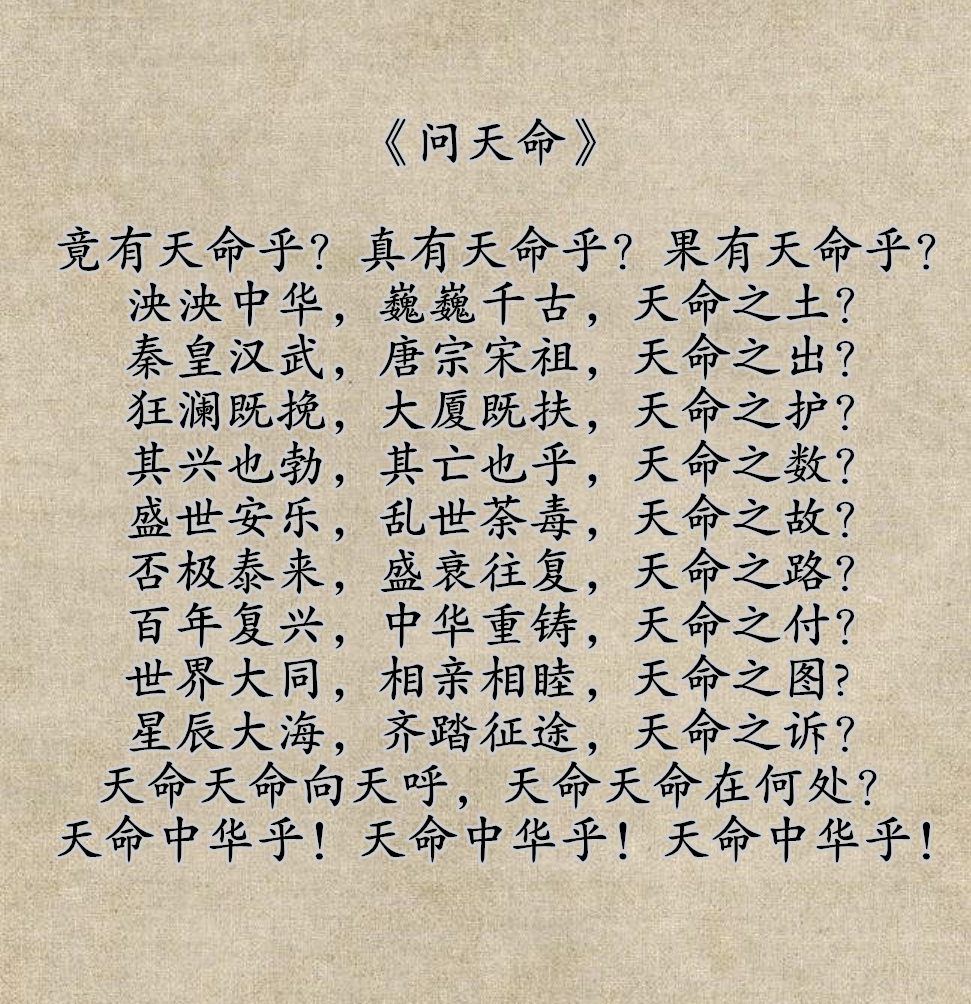 《问天命》
竟有天命乎？真有天命乎？果有天命乎？
泱泱中华，巍巍千古，天命之土？
秦皇汉武，唐宗宋祖，天命之出？
狂澜既挽，大厦既扶，天命之护？
其兴也勃，其亡也乎，天命之数？
盛世安乐，乱世荼毒，天命之故？
否极泰来，盛衰往复，天命之路？
百年复兴，中华重铸，天命之付？
世界大同，相亲相睦，天命之图?
星辰大海，齐踏征途，天命之诉？
天命天命向天呼，天命天命在何处？
天命中华乎！天命中华乎！天命中华乎！